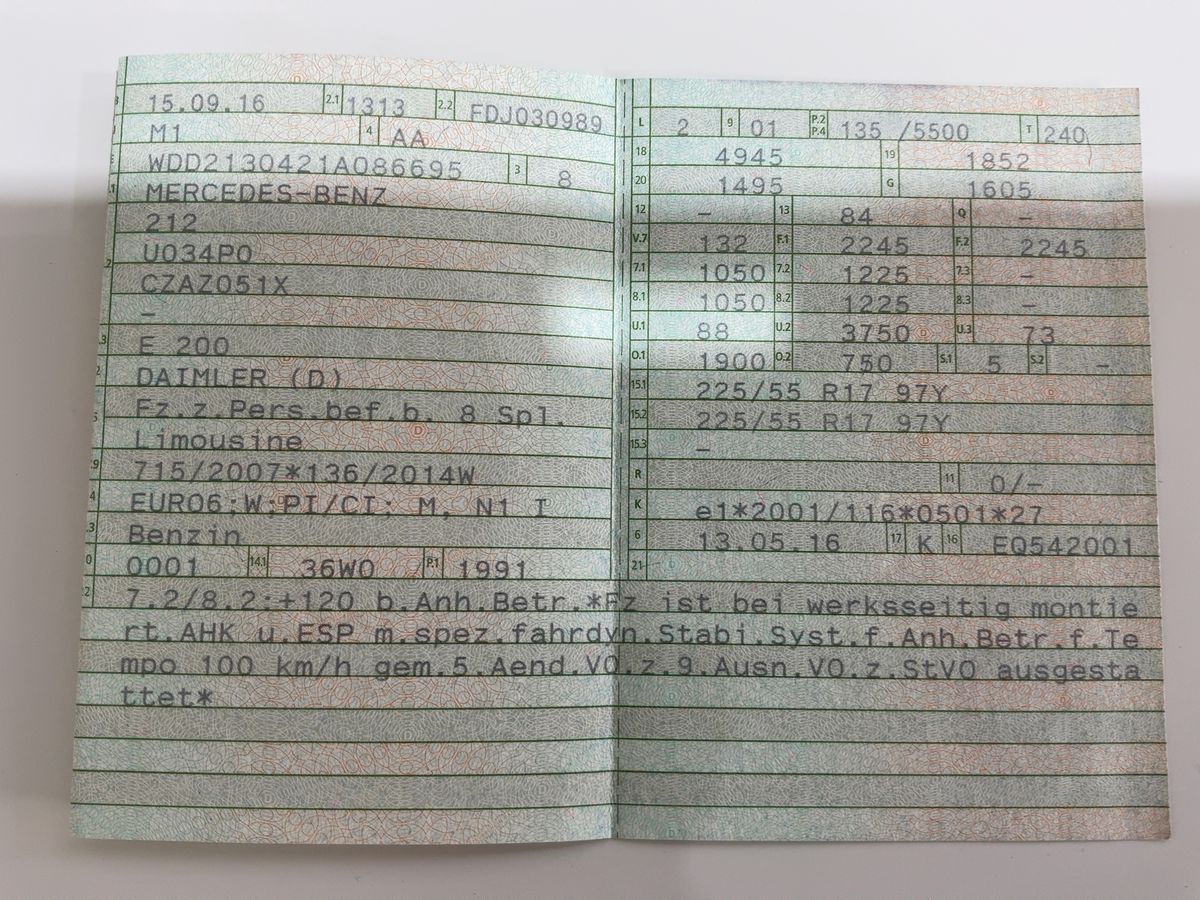 15.09.16 2.1 1313 2.2 FDJ030989
M1 4 AA
WDD2130421A086695 3 8
MERCEDES-BENZ
212
U034P0
CZAZ051X
–
E 200
DAIMLER (D)
Fz.z.Pers.bef.b. 8 Spl.
Limousine
715/2007*136/2014W
EURO6;W;PI/CI; M, N1 I
Benzin
0001 14.1 36W0 P.1 1991
L 2 9 01 P.2 P.4 135 /5500 T 240
18 4945 19 1852
20 1495 G 1605
12 – 13 84 Q –
V.7 132 F.1 2245 F.2 2245
7.1 1050 7.2 1225 7.3 –
8.1 1050 8.2 1225 8.3 –
U.1 88 U.2 3750 U.3 73
O.1 1900 O.2 750 S.1 5 S.2 –
15.1 225/55 R17 97Y
15.2 225/55 R17 97Y
15.3 –
R 11 0/–
K e1*2001/116*0501*27
6 13.05.16 17 K 16 EQ542001
21 –
7.2/8.2:+120 b.Anh.Betr.*Fz ist bei werksseitig montie
rt.AHK u.ESP m.spez.fahrdyn.Stabi.Syst.f.Anh.Betr.f.Te
mpo 100 km/h gem.5.Aend.VO.z.9.Ausn.VO.z.StVO ausgesta
ttet*